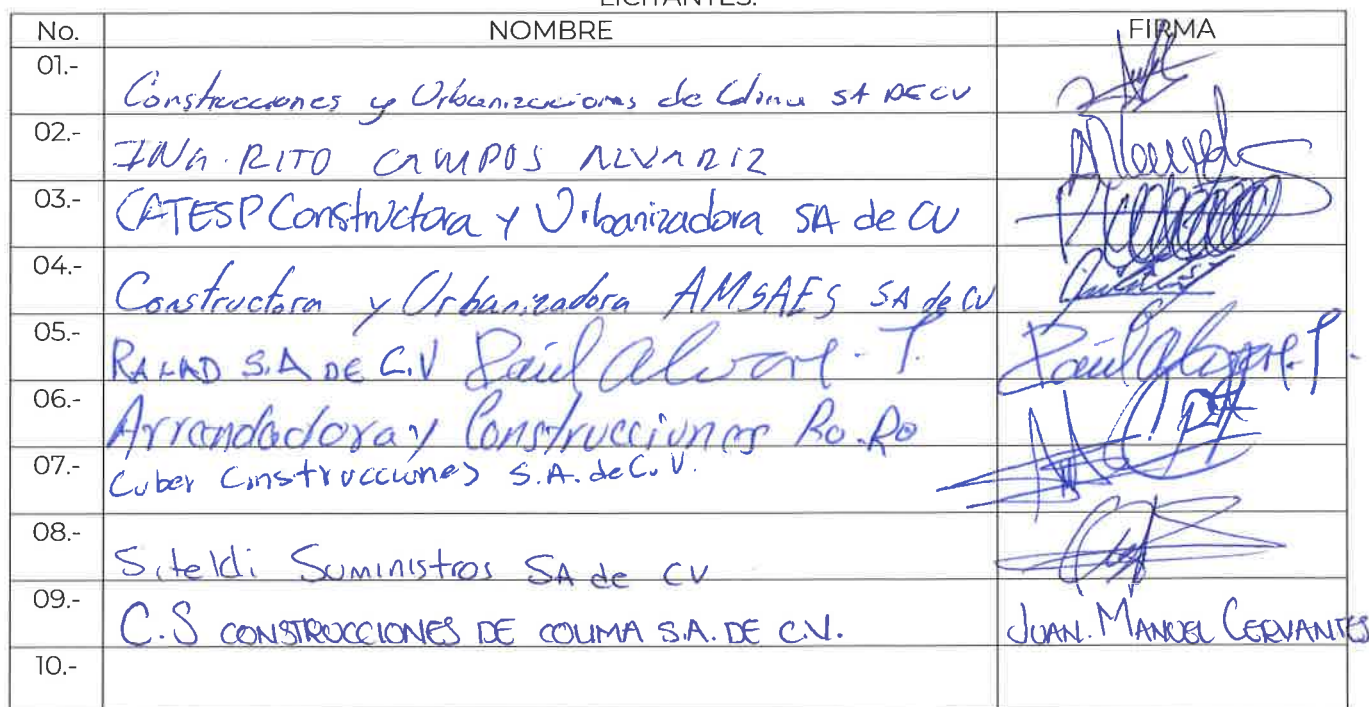 LICITANTES.
No. NOMBRE FIRMA
01.- Construcciones y Urbanizaciones de Colima SA DE CV
02.- ING. RITO CAMPOS ALVARIZ
03.- CATESP Constructora y Urbanizadora SA de CV
04.- Constructora y Urbanizadora AMSAES SA de CV
05.- RALAD S.A DE C.V Raúl Alvare. T. Raúl Alvare. T
06.- Arrendadora y Construcciones Ro.Ro
07.- Cuber Construcciones S.A. de C.V.
08.- Siteldi Suministros SA de CV
09.- C.S CONSTRUCCIONES DE COLIMA S.A. DE C.V. JUAN. MANUEL CERVANTES
10.-